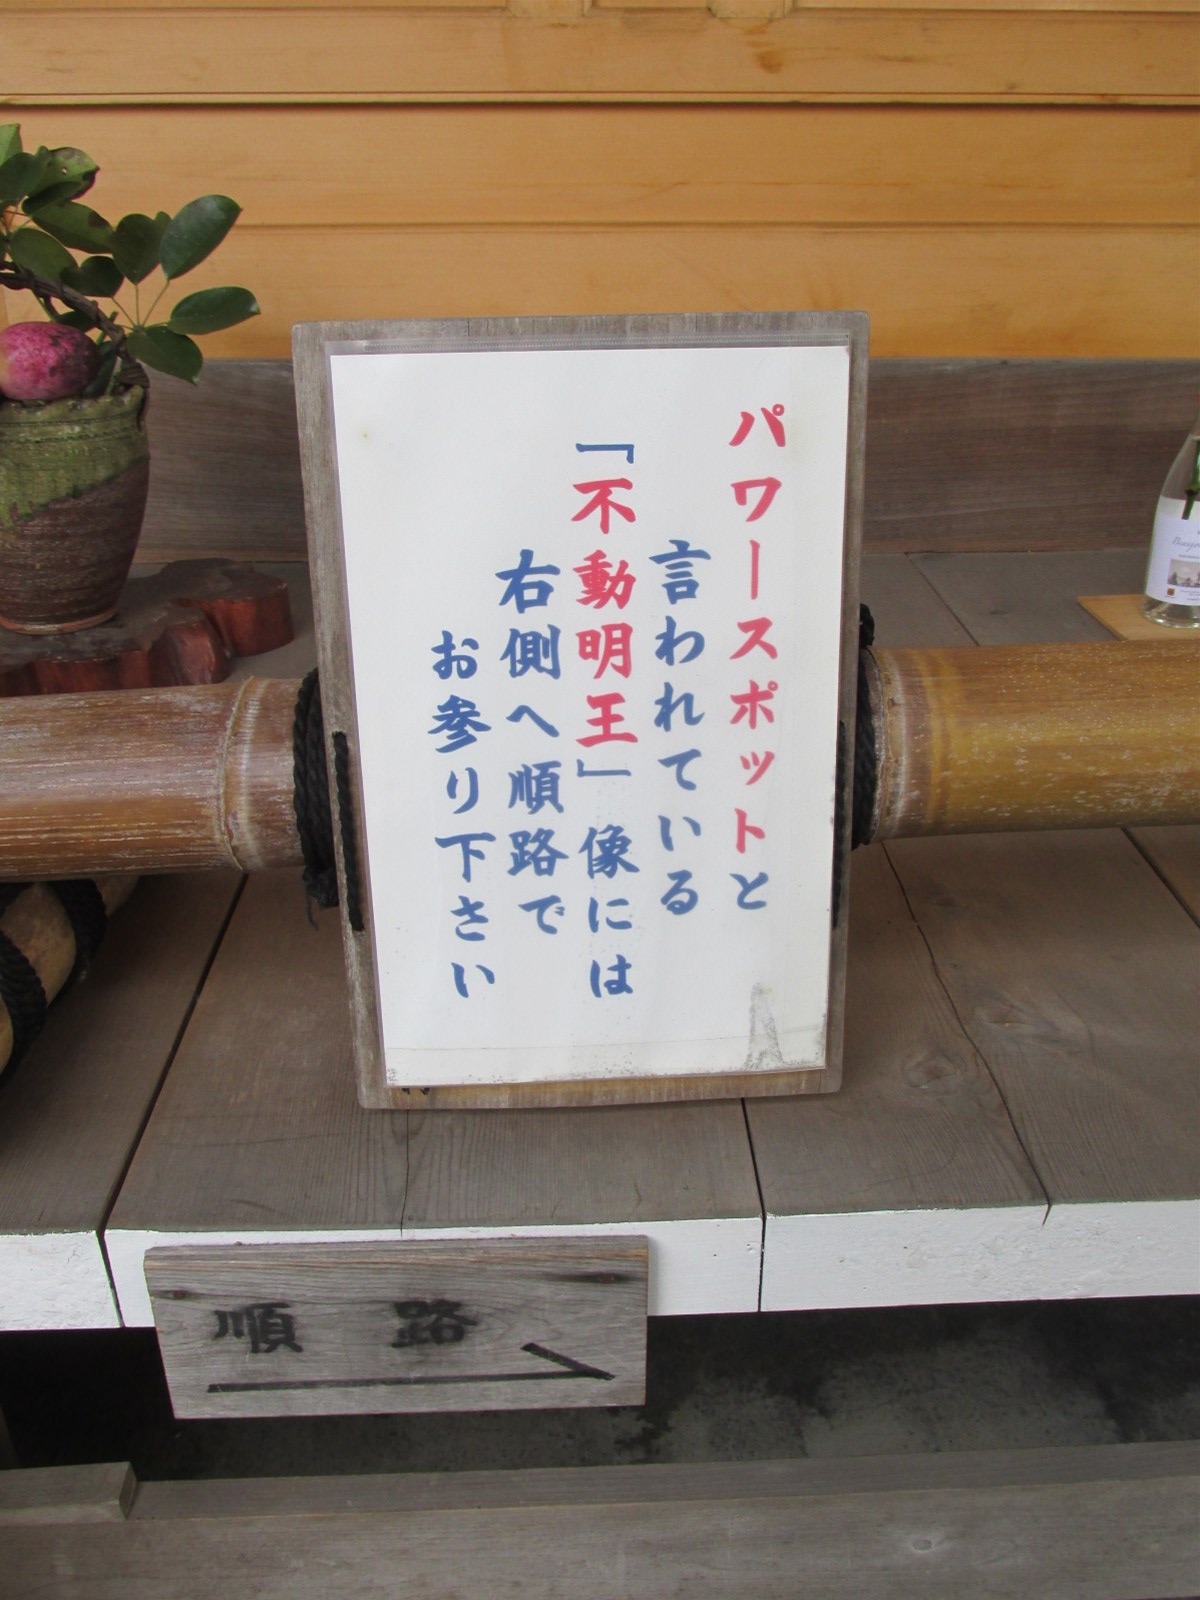 パワースポットと
言われている
「不動明王」像には
右側へ順路で
お参り下さい
順路